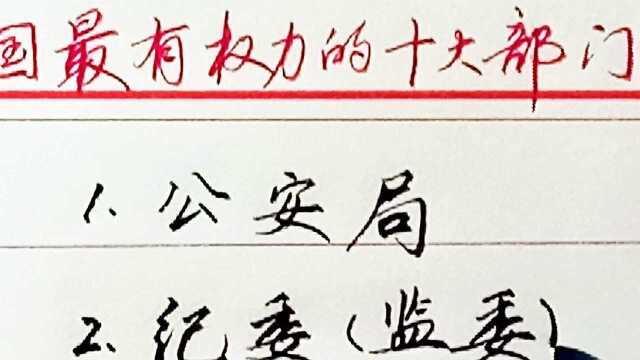 国最有权力的十大部门
1.公安局
2.纪委(监委)